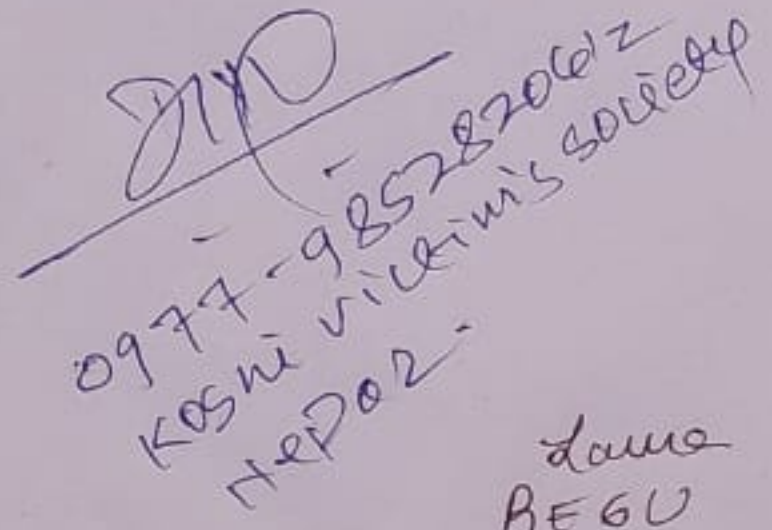 0977-9852820612
Koshi victims society
Nepal
Laura
BEGU